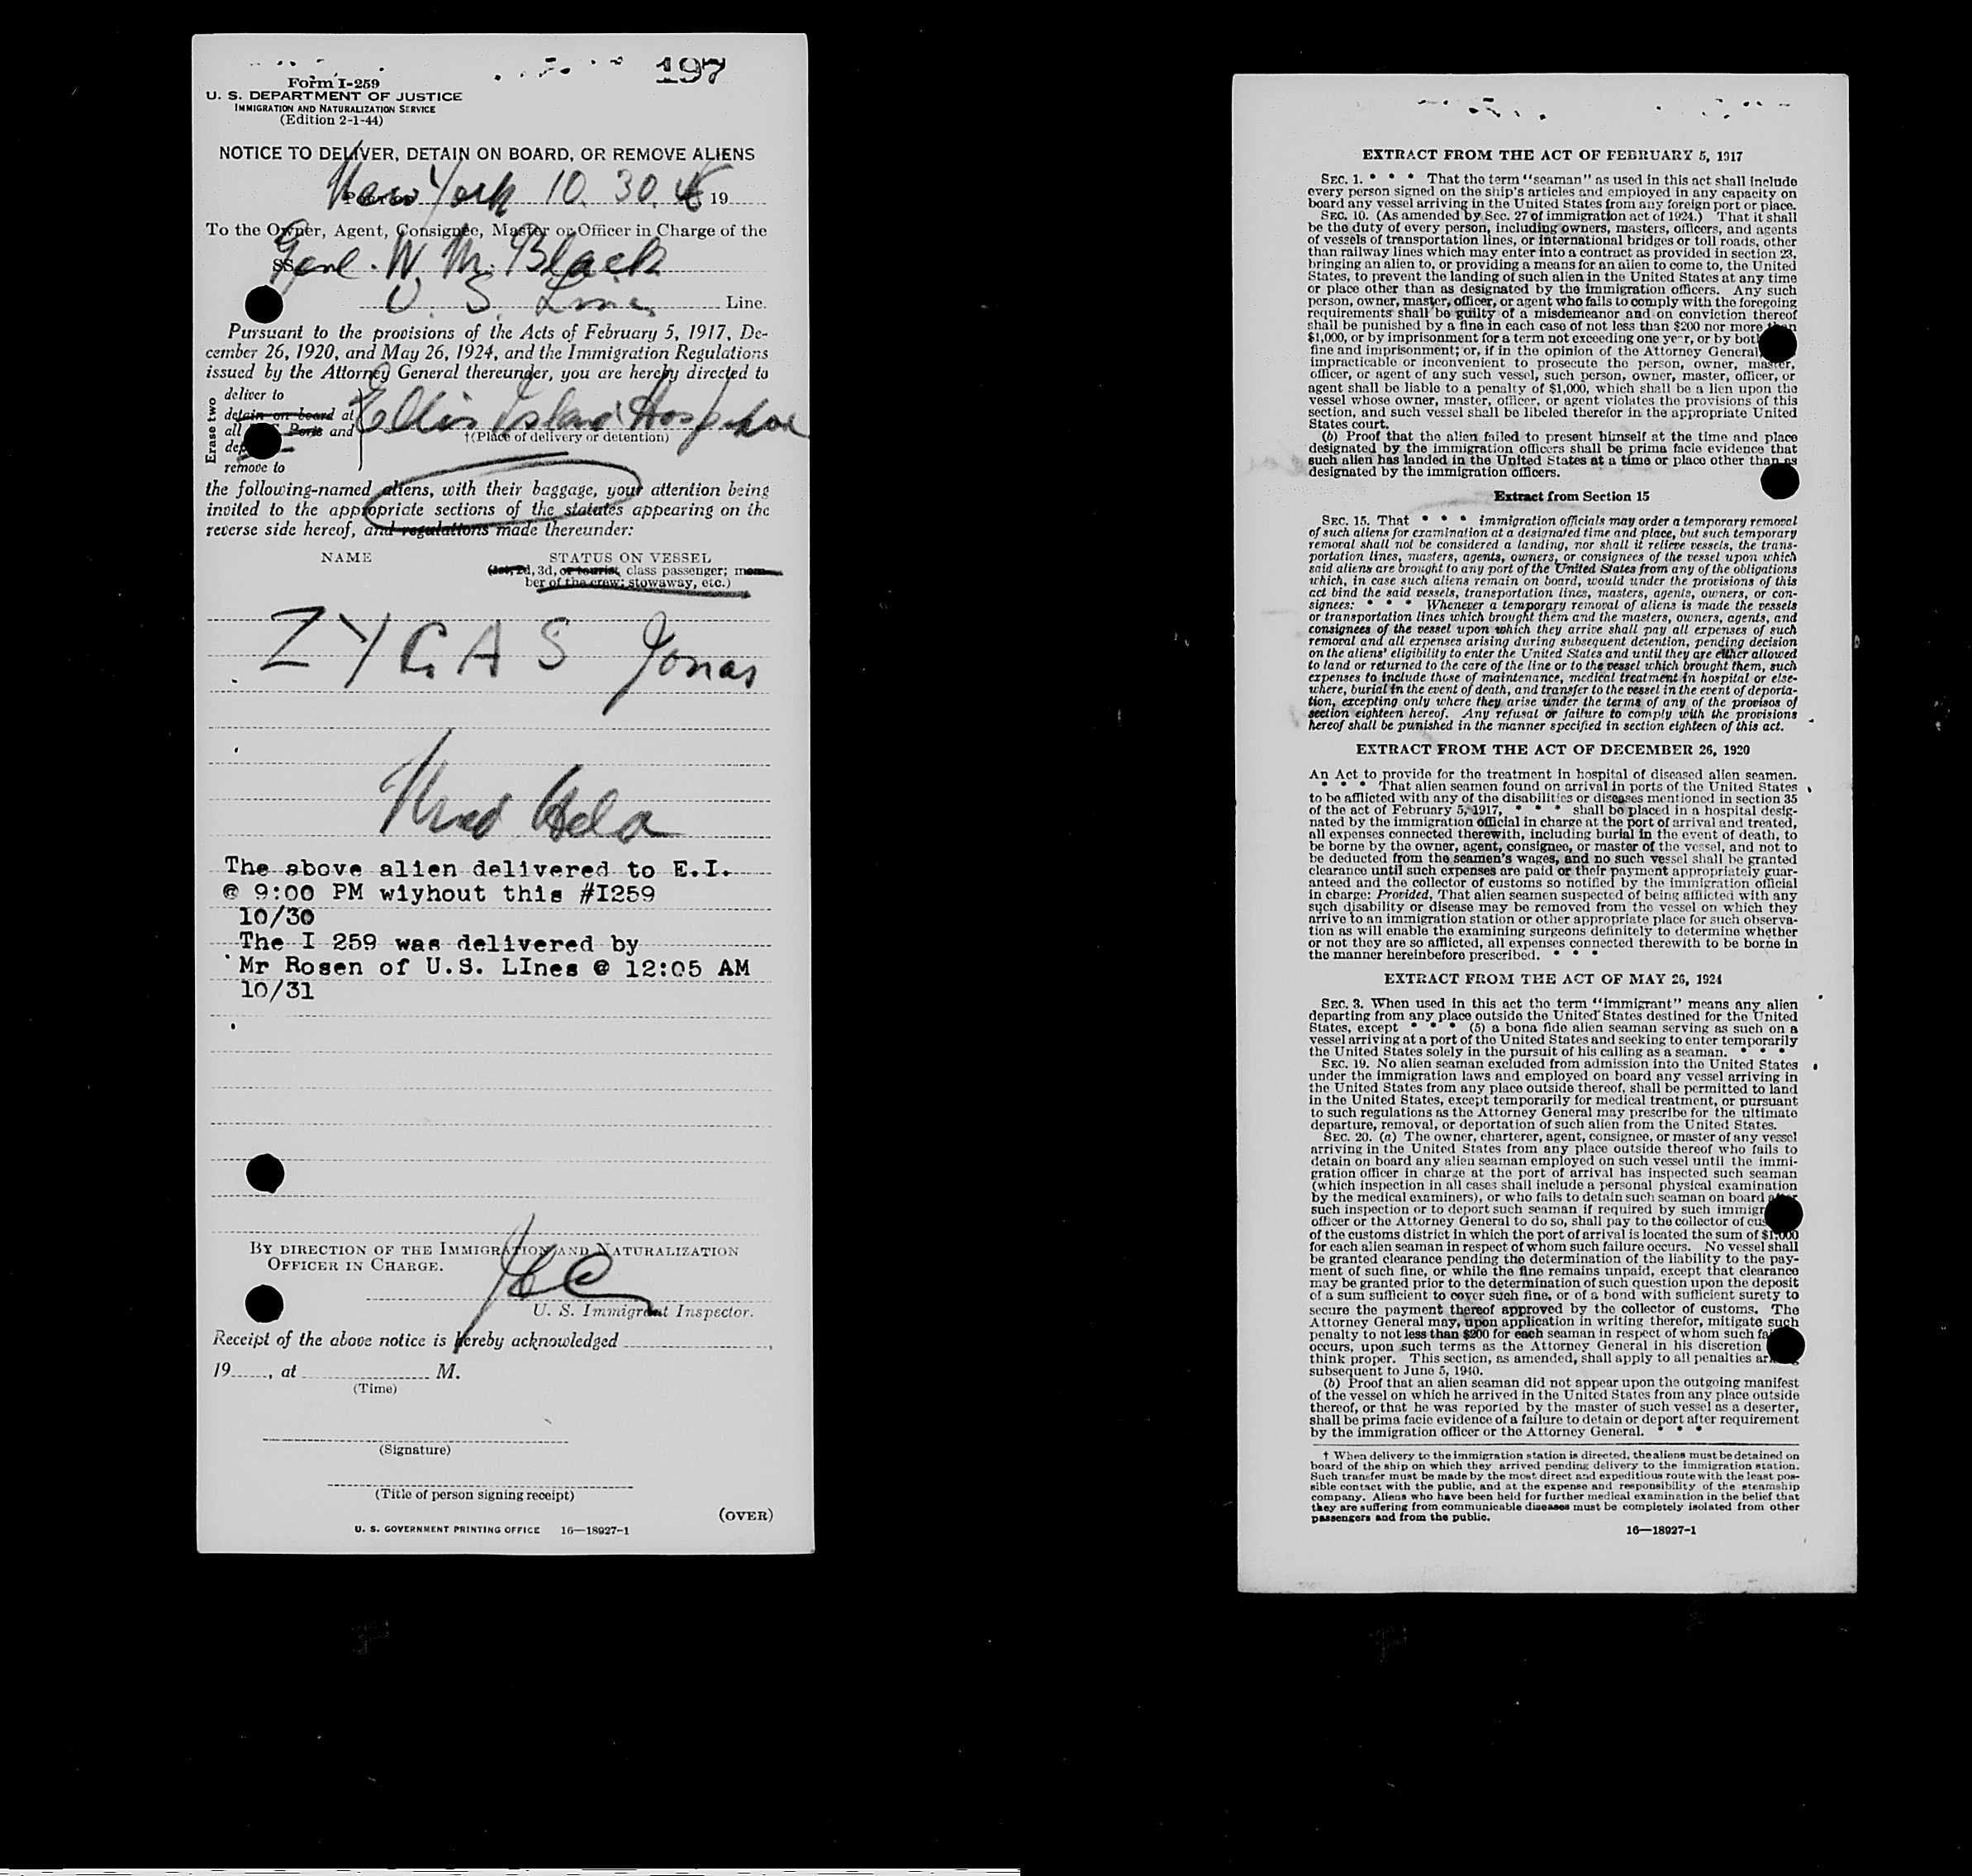 197
Form I-259
U. S. DEPARTMENT OF JUSTICE
IMMIGRATION AND NATURALIZATION SERVICE
(Edition 2-1-44)
NOTICE TO DELIVER, DETAIN ON BOARD, OR REMOVE ALIENS
New York 10. 30. 48 19
To the Owner, Agent, Consignee, Master or Officer in Charge of the
SS Genl. W. M. Black
U. S. Lines Line.
Pursuant to the provisions of the Acts of February 5, 1917, De-
cember 26, 1920, and May 26, 1924, and the Immigration Regulations
issued by the Attorney General thereunder, you are hereby directed to
Erase two
deliver to
detain on board at
all Ports and
remove to
Ellis Island Hospital
†(Place of delivery or detention)
the following-named aliens, with their baggage, your attention being
invited to the appropriate sections of the statutes appearing on the
reverse side hereof, and regulations made thereunder:
NAME STATUS ON VESSEL
(1st, 2d, 3d, or tourist, class passenger; mem-
ber of the crew; stowaway, etc.)
ZYGAS Jonas
Med Held
The above alien delivered to E.I.
@ 9:00 PM wiyhout this #I259
10/30
The I 259 was delivered by
Mr Rosen of U.S. LInes @ 12:05 AM
10/31
BY DIRECTION OF THE IMMIGRATION AND NATURALIZATION
OFFICER IN CHARGE.
U. S. Immigrant Inspector.
Receipt of the above notice is hereby acknowledged
19, at M.
(Time)
(Signature)
(Title of person signing receipt)
(OVER)
U. S. GOVERNMENT PRINTING OFFICE 16—18927-1
EXTRACT FROM THE ACT OF FEBRUARY 5, 1917
SEC. 1. * * * That the term "seaman" as used in this act shall include
every person signed on the ship's articles and employed in any capacity on
board any vessel arriving in the United States from any foreign port or place.
SEC. 10. (As amended by Sec. 27 of immigration act of 1924.) That it shall
be the duty of every person, including owners, masters, officers, and agents
of vessels of transportation lines, or international bridges or toll roads, other
than railway lines which may enter into a contract as provided in section 23,
bringing an alien to, or providing a means for an alien to come to, the United
States, to prevent the landing of such alien in the United States at any time
or place other than as designated by the immigration officers. Any such
person, owner, master, officer, or agent who fails to comply with the foregoing
requirements shall be guilty of a misdemeanor and on conviction thereof
shall be punished by a fine in each case of not less than $200 nor more than
$1,000, or by imprisonment for a term not exceeding one year, or by both
fine and imprisonment; or, if in the opinion of the Attorney General,
impracticable or inconvenient to prosecute the person, owner, master,
officer, or agent of any such vessel, such person, owner, master, officer, or
agent shall be liable to a penalty of $1,000, which shall be a lien upon the
vessel whose owner, master, officer, or agent violates the provisions of this
section, and such vessel shall be libeled therefor in the appropriate United
States court.
(b) Proof that the alien failed to present himself at the time and place
designated by the immigration officers shall be prima facie evidence that
such alien has landed in the United States at a time or place other than as
designated by the immigration officers.
Extract from Section 15
SEC. 15. That * * * immigration officials may order a temporary removal
of such aliens for examination at a designated time and place, but such temporary
removal shall not be considered a landing, nor shall it relieve vessels, the trans-
portation lines, masters, agents, owners, or consignees of the vessel upon which
said aliens are brought to any port of the United States from any of the obligations
which, in case such aliens remain on board, would under the provisions of this
act bind the said vessels, transportation lines, masters, agents, owners, or con-
signees: * * * Whenever a temporary removal of aliens is made the vessels
or transportation lines which brought them and the masters, owners, agents, and
consignees of the vessel upon which they arrive shall pay all expenses of such
removal and all expenses arising during subsequent detention, pending decision
on the aliens' eligibility to enter the United States and until they are either allowed
to land or returned to the care of the line or to the vessel which brought them, such
expenses to include those of maintenance, medical treatment in hospital or else-
where, burial in the event of death, and transfer to the vessel in the event of deporta-
tion, excepting only where they arise under the terms of any of the provisos of
section eighteen hereof. Any refusal or failure to comply with the provisions
hereof shall be punished in the manner specified in section eighteen of this act.
EXTRACT FROM THE ACT OF DECEMBER 26, 1920
An Act to provide for the treatment in hospital of diseased alien seamen.
* * * That alien seamen found on arrival in ports of the United States
to be afflicted with any of the disabilities or diseases mentioned in section 35
of the act of February 5, 1917, * * * shall be placed in a hospital desig-
nated by the immigration official in charge at the port of arrival and treated,
all expenses connected therewith, including burial in the event of death, to
be borne by the owner, agent, consignee, or master of the vessel, and not to
be deducted from the seamen's wages, and no such vessel shall be granted
clearance until such expenses are paid or their payment appropriately guar-
anteed and the collector of customs so notified by the immigration official
in charge: Provided, That alien seamen suspected of being afflicted with any
such disability or disease may be removed from the vessel on which they
arrive to an immigration station or other appropriate place for such observa-
tion as will enable the examining surgeons definitely to determine whether
or not they are so afflicted, all expenses connected therewith to be borne in
the manner hereinbefore prescribed. * * *
EXTRACT FROM THE ACT OF MAY 26, 1924
SEC. 3. When used in this act the term "immigrant" means any alien
departing from any place outside the United States destined for the United
States, except * * * (5) a bona fide alien seaman serving as such on a
vessel arriving at a port of the United States and seeking to enter temporarily
the United States solely in the pursuit of his calling as a seaman. * * *
SEC. 19. No alien seaman excluded from admission into the United States
under the immigration laws and employed on board any vessel arriving in
the United States from any place outside thereof, shall be permitted to land
in the United States, except temporarily for medical treatment, or pursuant
to such regulations as the Attorney General may prescribe for the ultimate
departure, removal, or deportation of such alien from the United States.
SEC. 20. (a) The owner, charterer, agent, consignee, or master of any vessel
arriving in the United States from any place outside thereof who fails to
detain on board any alien seaman employed on such vessel until the immi-
gration officer in charge at the port of arrival has inspected such seaman
(which inspection in all cases shall include a personal physical examination
by the medical examiners), or who fails to detain such seaman on board after
such inspection or to deport such seaman if required by such immigr
officer or the Attorney General to do so, shall pay to the collector of cus
of the customs district in which the port of arrival is located the sum of $1,000
for each alien seaman in respect of whom such failure occurs. No vessel shall
be granted clearance pending the determination of the liability to the pay-
ment of such fine, or while the fine remains unpaid, except that clearance
may be granted prior to the determination of such question upon the deposit
of a sum sufficient to cover such fine, or of a bond with sufficient surety to
secure the payment thereof approved by the collector of customs. The
Attorney General may, upon application in writing therefor, mitigate such
penalty to not less than $200 for each seaman in respect of whom such fa
occurs, upon such terms as the Attorney General in his discretion
think proper. This section, as amended, shall apply to all penalties ar
subsequent to June 5, 1940.
(b) Proof that an alien seaman did not appear upon the outgoing manifest
of the vessel on which he arrived in the United States from any place outside
thereof, or that he was reported by the master of such vessel as a deserter,
shall be prima facie evidence of a failure to detain or deport after requirement
by the immigration officer or the Attorney General. * * *
† When delivery to the immigration station is directed, the aliens must be detained on
board of the ship on which they arrived pending delivery to the immigration station.
Such transfer must be made by the most direct and expeditious route with the least pos-
sible contact with the public, and at the expense and responsibility of the steamship
company. Aliens who have been held for further medical examination in the belief that
they are suffering from communicable diseases must be completely isolated from other
passengers and from the public.
16—18927-1